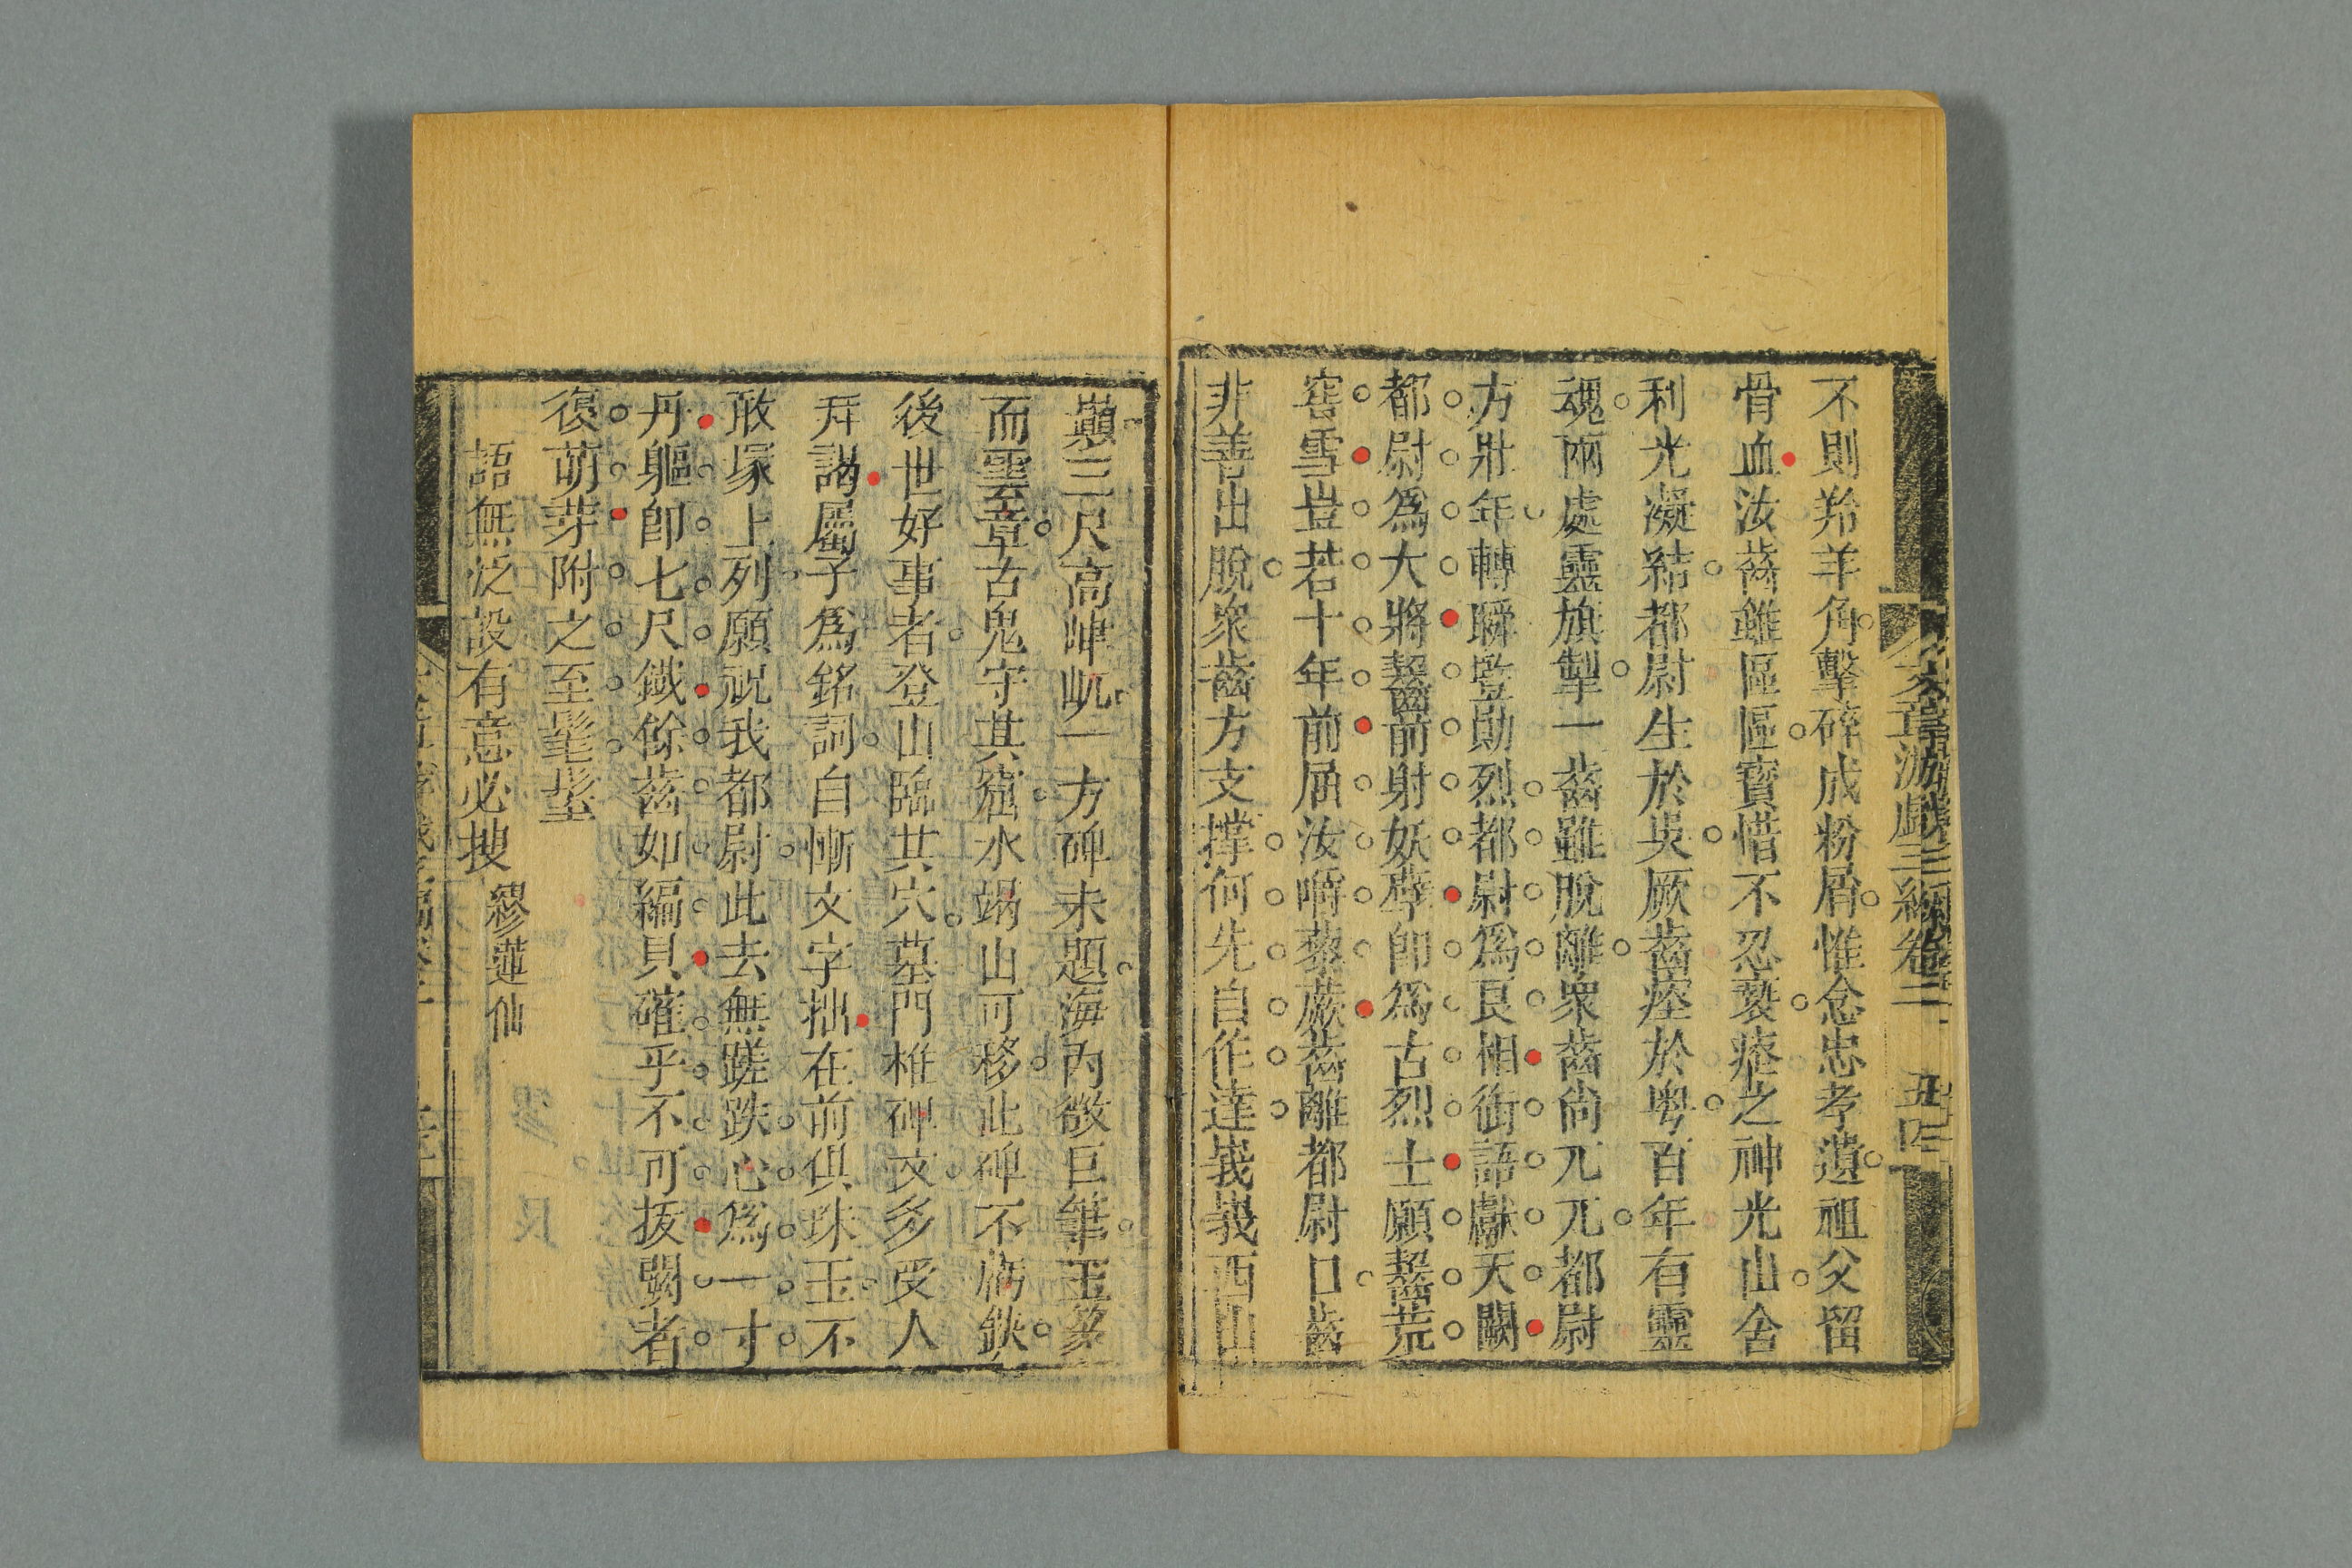 文章游戲三編卷二
五四
不則羚羊角擊碎成粉屑惟念忠孝遺祖父留
骨血汝齒雖區區寶惜不忍褻瘞之神光山舍
利光凝結都尉生於吳厥齒瘞於粵百年有靈
魂兩處靈旗掣一齒雖脫離衆齒尚兀兀都尉
方壯年轉瞬豎勛烈都尉爲良相銜語獻天闕
都尉爲大將齧前射妖孽卽爲古烈士願齧荒
窖雪豈若十年前屆汝嚼藜蕨齒離都尉口齒
非善出脫衆齒方支撑何先自作達峩峩西山
巔三尺高嵂屼一方碑未題海內徵巨筆玉篆
而雲章古鬼守其窟水竭山可移此碑不虧缺
後世好事者登山臨其穴墓門椎碑文多受人
幷謁屬子爲銘詞自慚文字拙在前俱珠玉不
敢塚上列願祝我都尉此去無蹉跌心爲一寸
丹軀卽七尺鐵餘齒如編貝確乎不可拔剟者
復萌芽附之至髦髽
語無泛設有意必搜
繆蓮仙